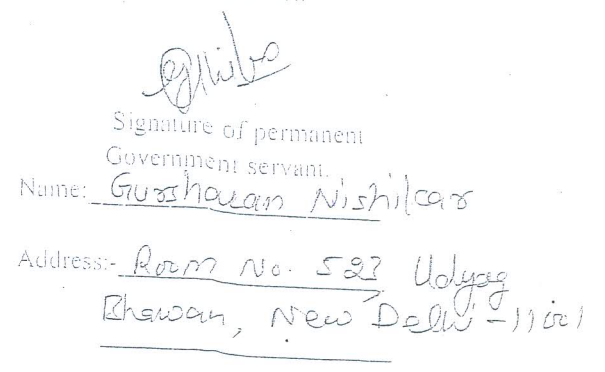 Signature of permanent
Government servant.
Name: Gursharan Nishikar
Address:- Room No. 523, Udyog
Bhawan, New Delhi - 11001